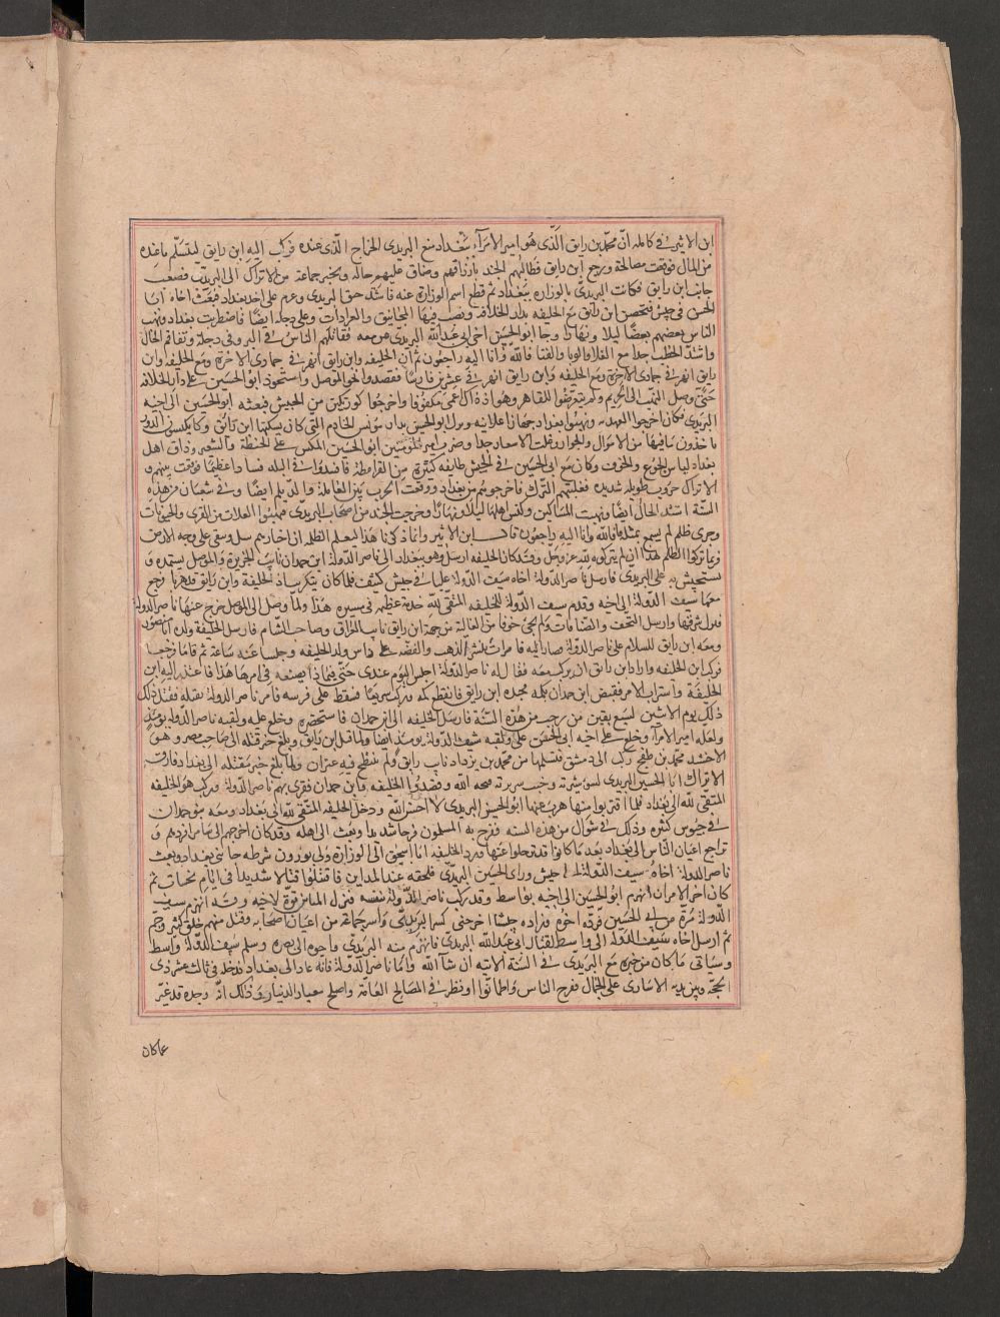 ابن الاثير في كامله انّ محمد بن رايق الّذي هو امير الامرآء ببغداد منع البريدي الخراج الّذي عنده فركب اليه ابن رايق ليتسلّم ما عنده
من المال فوقعت مصالحة ورجع ابن رايق فطالبهم الجند بارزاقهم وضاق عليهم حاله وتحيز جماعة من الاتراك الى البريديّ فضعف
جانب ابن رايق فكاتب البريديّ بالوزاره ببغداد ثم قطع اسم الوزاره عنه فاشتد حنق البريدي وعزم على اخذ بغداد فبعث اخاه ابا
الحسين في جيش فتحصن ابن رايق مع الخليفه بدار الخلافة ونصب فيها المجانيق والعرادات وعلى دجله ايضًا فاضطربت بغداد ونهب
الناس بعضهم بعضًا ليلا ونهارًا وجا ابو الحسين اخي ابي عبد الله البريدي بمن معه فقاتلهم الناس في البر وفي دجلة وتفاقم الحال
واشتد الخطب جدا مع الغلا والوبا والفنا فانّا لله وانا اليه راجعون ثم ان الخليفه وابن رايق انهزما في جمادى الاخرة ومع الخليفه وابن
رايق انهزما في جمادى الاخرة ومع الخليفه وابن رايق انهزما في عشرين فارسًا فقصدوا نحو الموصل واستحوذ ابو الحسين على دار الخلافه
حتّى وصل النهب الى الحريم ولم يتعرضوا للقاهر وهو اذ ذاك اعمى مكفوفا واخرجوا كورتكين من الحبس فبعثه ابو الحسين الى اخيه
البريدي فكان اخر العهد به ونهبوا بغداد جهارًا علانية ونزل ابو الحسين بدار مونس الخادم التي كان يسكنها ابن رائق وكانوا يكبسون الدور
ياخذون ما فيها من الاموال والجوار وغلت الاسعار جدا وضرب ابو الحسين المكس على الحنطة والشعير وذاق اهل
بغداد لباس الجوع والخوف وكان مع ابي الحسين في الجيش طايفه كثيرة من القرامطة فافسدوا في البلد فسادا عظيمًا ووقعت بينهم و
الاتراك حروب طويله شديدة فغلبتهم الترك فاخرجوهم من بغداد ووقعت الحرب بين العامة والديلم ايضًا وفي شعبان من هذه
السّنة اشتد الحال ايضًا ونهبت المساكين وكبس اهلها ليلا ونهارًا وخرجت الجند من اصحاب البريديّ فنهبوا الغلات من القرى والحيوانات
وجرى ظلم لم يسمع بمثله فانّا لله وانا اليه راجعون قال ابن الاثير وانما ذكرنا هذا ليعلم الظلمه ان اخبارهم تنقل وتبقى على وجه الارض
فربما تركوا الظلم لهذا ان لم يتركوه لله عزّ وجلّ وقد كان الخليفه ارسل وهو ببغداد الى ناصر الدولة ابن حمدان نايب الجزيرة والموصل يستمده و
يستجيش به على البريديّ فارسل ناصر الدولة اخاه سيف الدولة عليا في جيش كثيف فلما كان بتكريت اذ الخليفة وابن رايق قد هربا فرجع
معهما سيف الدّولة الى اخيه وقدم سيف الدّولة للخليفه المتقي لله خدمة عظيمه في مسيره هذا ولما وصل الى الموصل خرج عنها ناصر الدولة
فنزل شرقيها وارسل التحف والضيافات ولم يجئ خوفا من الغائلة من جهة ابن رايق نايب العراق وصاحب الشام فارسل الخليفة ولده ابا منصور
ومعه ابن رايق للسلام على ناصر الدولة فصارا اليه فامر ان ينثر الذهب والفضه على راس ولد الخليفه وجلسا عنده ساعة ثم قاما فرجعا
فركب ابن الخليفه واراد ابن رائق ان يركب معه فقال له ناصر الدولة اجلس اليوم عندي حتّى نفكر فيما نصنعه في امرنا هذا فاعتذر اليه بابن
الخليفة واستراب الامر فقبض ابن حمدان بكمه فجذبه ابن رايق فانقطع كمه وركب سريعا فسقط على فرسه فامر ناصر الدولة بقتله فقتل ذلك
ذلك يوم الاثنين لسبع بقين من رجب من هذه السنة فارسل الخليفه الى ابن حمدان فاستحضره وخلع عليه ولقبه ناصر الدولة يومئذ
وجعله امير الامرآء وخلع على اخيه ابي الحسن علي ولقبه سيف الدولة يومئذ ايضا ولما قتل ابن رايق وبلغ خبر قتله الى صاحب مصر وهو
الاخشيد محمد بن طغج ركب الى دمشق فتسلمها من محمد بن يزداد نايب رايق ولم ينتطح فيه عنزان ولما بلغ خبر مقتله الى بغداد فارقت
الاتراك ابا الحسين البريدي لسوء سيرته وخبث سريرته قبحه الله وقصدوا الخليفه وابن حمدان فتقوى بهم ناصر الدولة وركب هو الخليفه
المتقي لله الى بغداد فلما اقتربوا منها هرب عنها ابو الحسين البريدي لا احسن الله ودخل الخليفه المتقي لله الى بغداد ومعه بنو حمدان
في جيوش كثيره وذلك في شوال من هذه السنه ففرح به المسلمون فرحا شديدا وبعث الى اهله وقد كان اخرجهم الى سامرا فردهم و
تراجع اعيان الناس الى بغداد بعد ما كانوا قد ترحلوا عنها ورد الخليفه ابا اسحق الى الوزارة وولى توزون شرطه جانبي بغداد وبعث
ناصر الدولة اخاه سيف الدولة في جيش ورآى الحسين البريدي فلحقه عند المداين فاقتتلوا قتالا شديدا في ايام نحسات ثم
كان اخر الامر ان انهزم ابو الحسين الى اخيه بواسط وقد ركب ناصر الدّولة بنفسه فنزل المداين قوّة لاخيه وقد انهزم سيف
الدّولة مرّة من ابي الحسين فردّه اخوه فزاده جيشا اخر حتى كسر البريديّ واسر جماعة من اعيان اصحابه وقتل منهم خلق كثير وجم
ثم ارسل اخاه سيف الدولة الى واسط لقتال ابي عبد الله البريدي فانهزم منه البريديّ واخوه الى بصره وسلم سيف الدّولة واسط
وسياتي ما كان من خبره مع البريدي في السّنة الاتيه ان شآ الله وامّا ناصر الدولة فانه عاد الى بغداد فدخلها في ثالث عشر ذي
الحجّه وبين يديه الاسارى على الجمال ففرح الناس واطمانّوا ونظر في المصالح العامّة واصلح معيار الدينار وذلك انّه وجده قد غيّر
عما كان